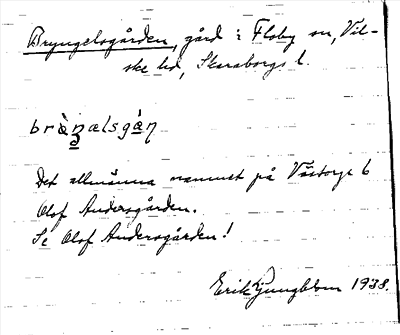 Bryngelsgården, gård i Floby sn, Vil-
ske hd, Skaraborgs l.
Det allmänna namnet på Västorp 6
Olof Andersgården.
Se Olof Andersgården!
Erik Ljungblom 1938.